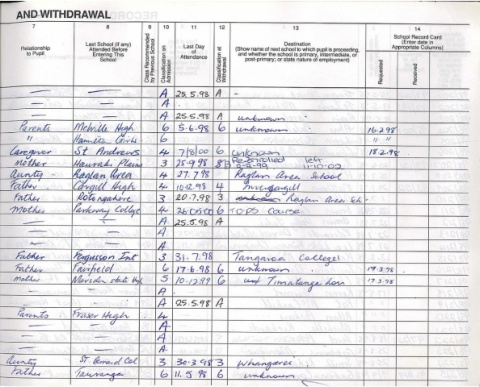 AND WITHDRAWAL
7 8 9 10 11 12 13 14
Relationship to Pupil
Last School (if any) Attended Before Entering This School
Class Recommended by Previous School
Classification on Admission
Last Day of Attendance
Classification at Withdrawal
Destination
(Show name of next school to which pupil is proceeding, and whether the school is primary, intermediate, or post-primary; or state nature of employment)
School Record Card
(Enter date in Appropriate Columns)
Requested
Received
— — A 25.5.98 A -
— — A
— — A 25.5.98 A unknown
Parents Melville High 6 5-6.98 6 unknown 16.2.98
" Hamilton Girls 6 " "
Caregiver St Andrews 4 7/8/00 6 unknown 18.2.98
Mother Hauraki Plains 3 25-9.98
Aunty Raglan Area 4 27.7.98 Raglan Area School
Father Cargill High 4 10.12.98 4 Invercargill
Father Rotongahere 3 20.7.98 3 Raglan Area Sch
Mother Parkway College 4 6 TOPS Course
— — A 25.5.98 A
— — A
— — A
Father Fergusson Int 3 31.7.98 Tangaroa College
Father Fairfield 6 17.6.98 6 unknown 19.3.98
Mother 5 10-12.99 6 17.3.98
— — A
— — A 25.5.98 A
Parents Fraser High 4
— — A
— — A
— — A
Aunty St Bernard Col 3 30.3.98 3 Whangarei
Father Tauranga 6 11.5.98 6 unknown